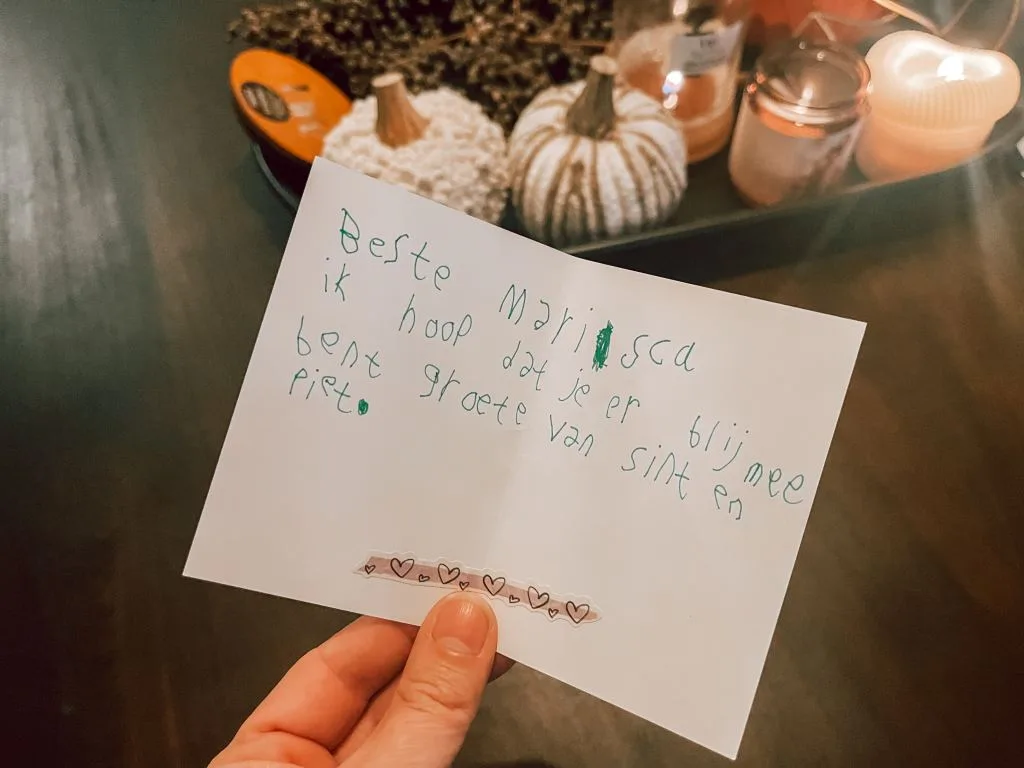 Beste Marisca
ik hoop dat je er blij mee
bent groete van sint en
piet.